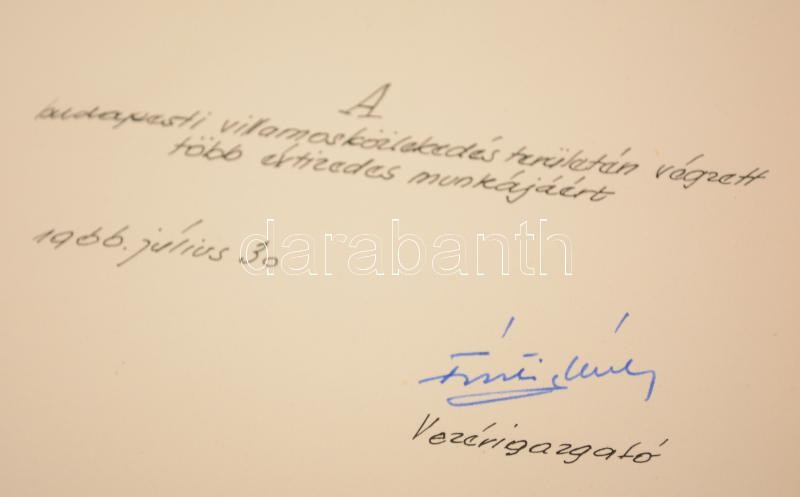 A
budapesti villamosközlekedés területén végzett
több évtizedes munkájáért
1966. július 30
darabanth
Vezérigazgató